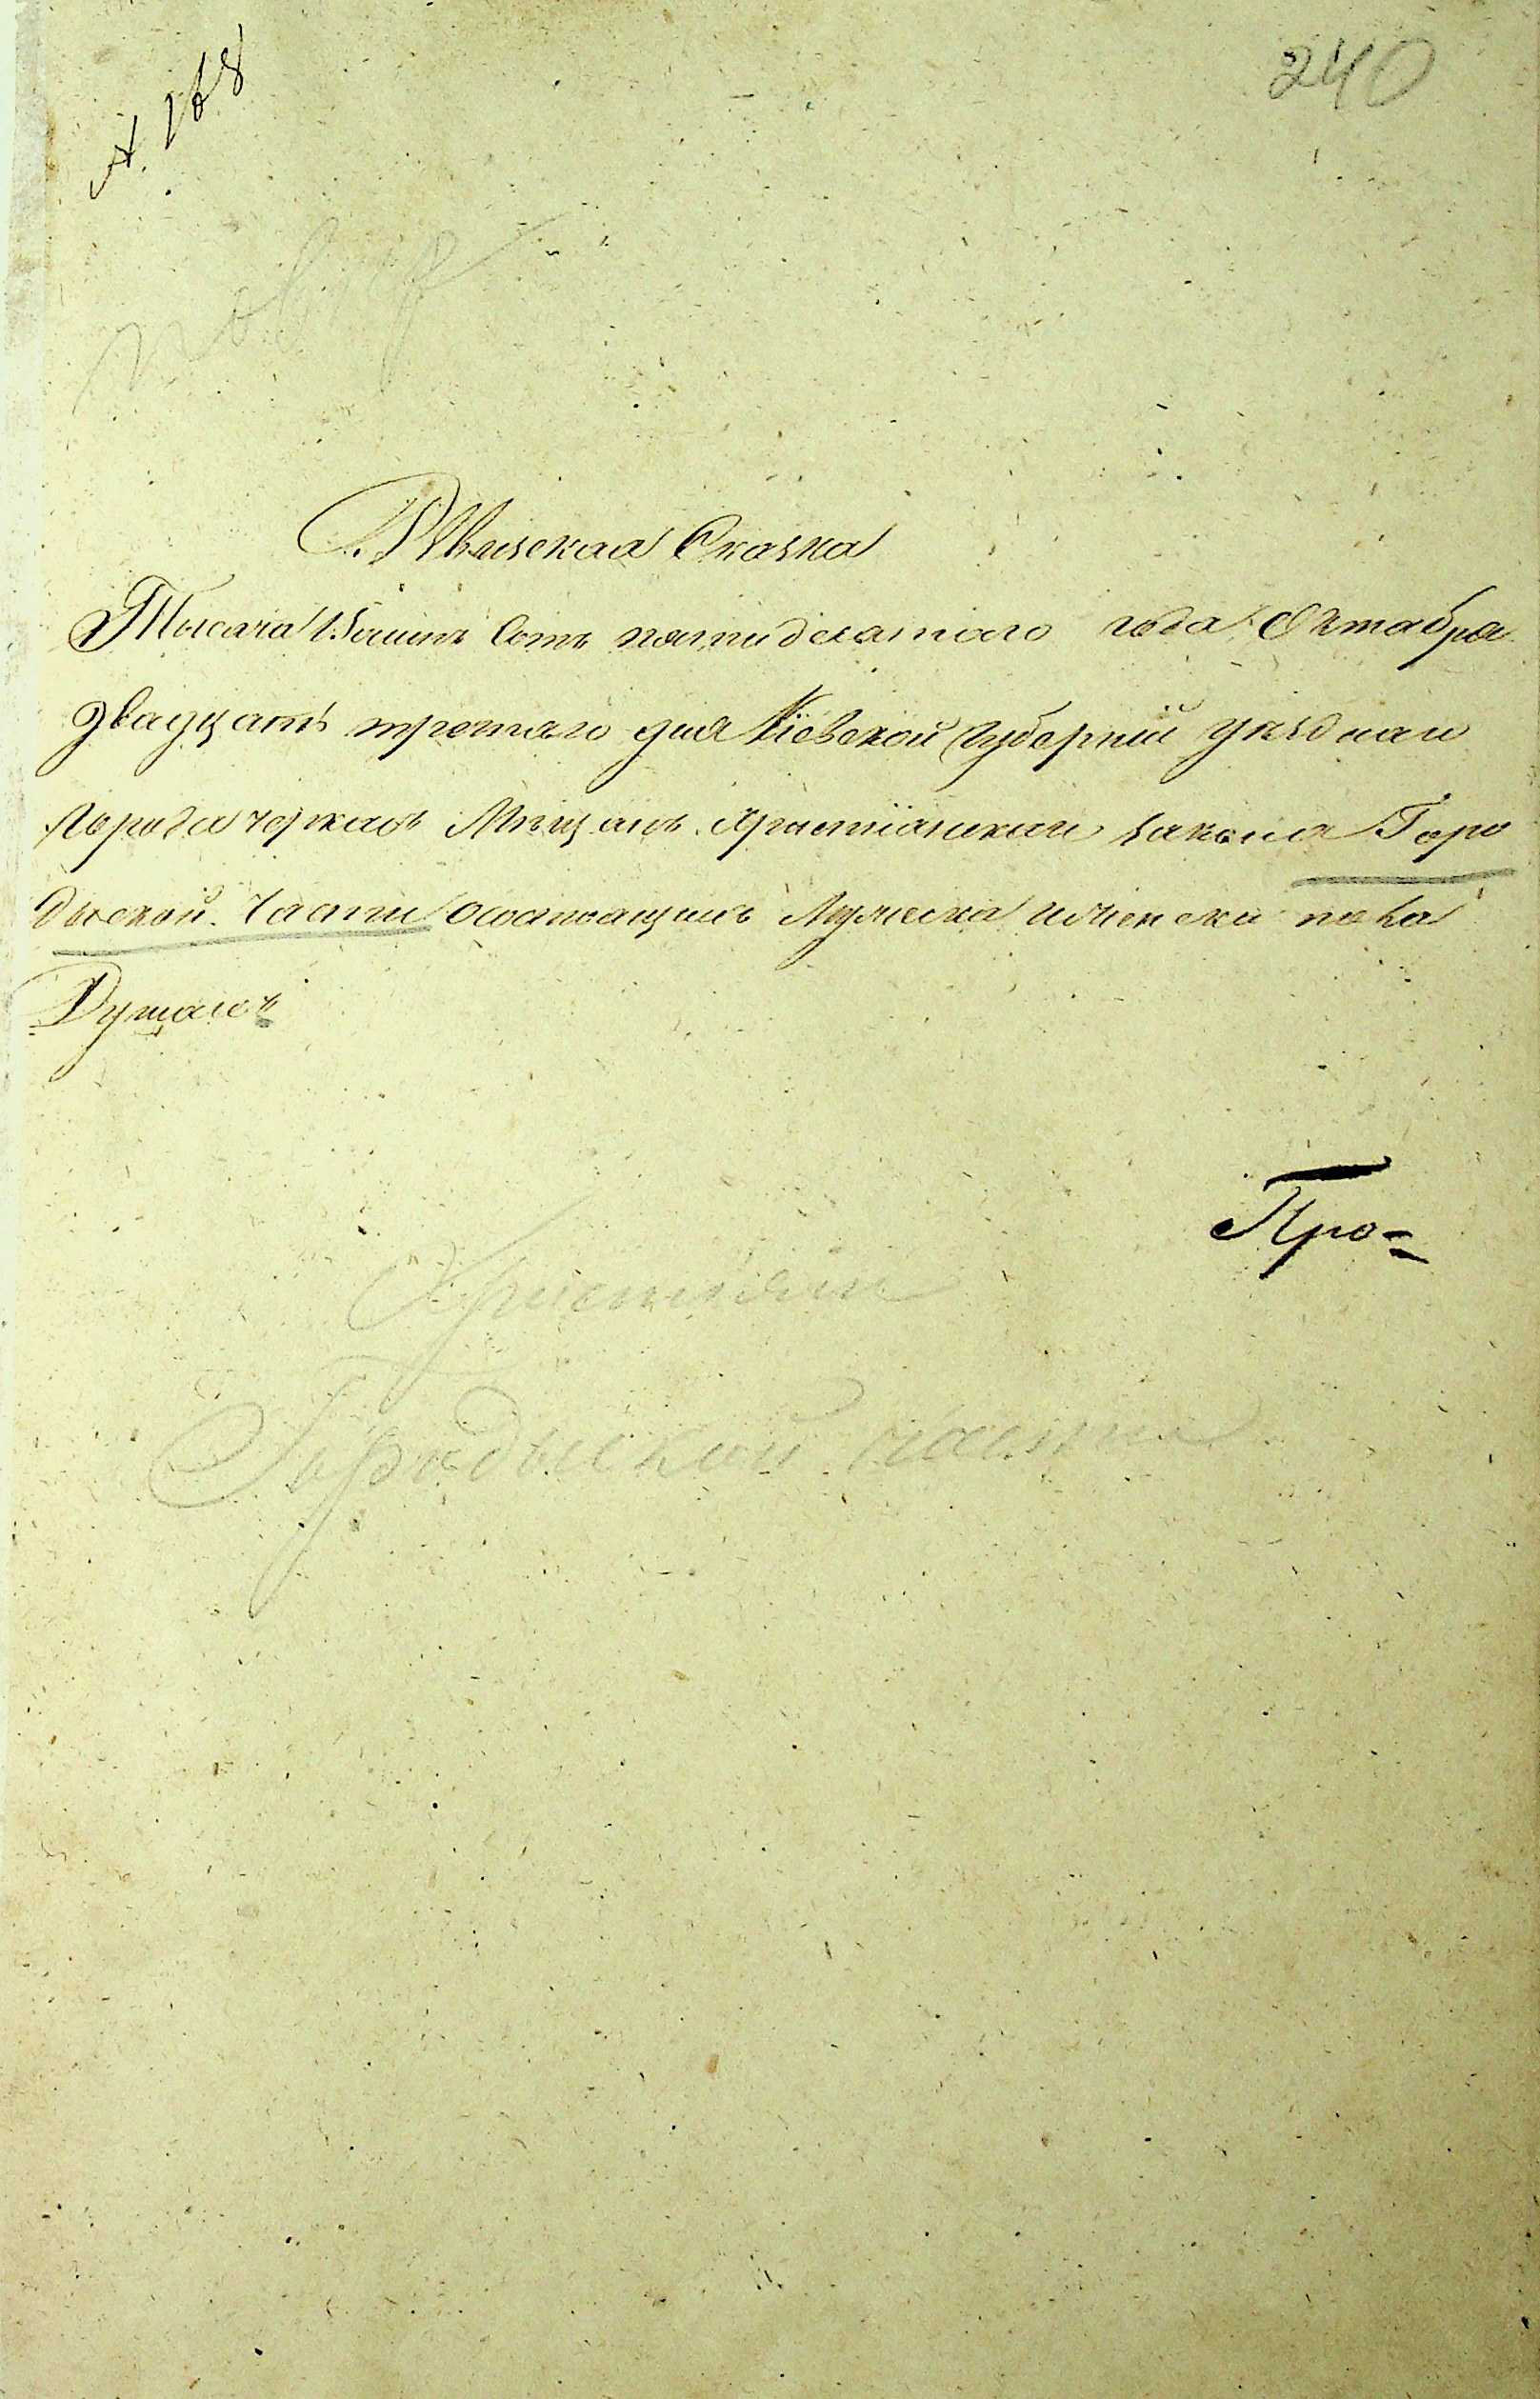 240
Ревизская Сказка
Тысяча Восимъ Сотъ пятидесятого года Октября
двадцать третяго дня Кіевской Губерніи уѣзднаго
города Черкасъ Мѣщанъ Христіанскаго закона Горо
дыской Части о состоящихъ Мужеска и Женска пола
Душахъ
Про=
Христіане
Городыской части